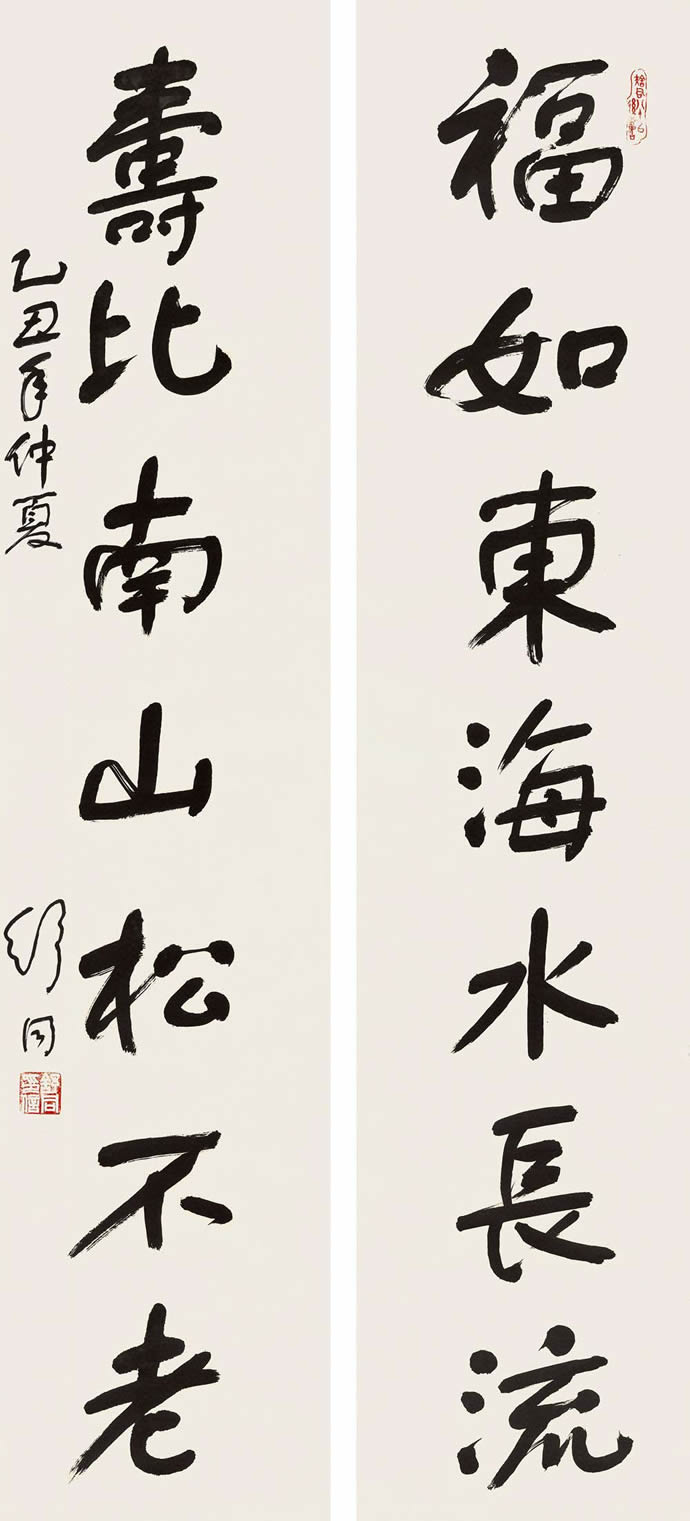 福如東海水長流
壽比南山松不老
乙丑年仲夏
舒同
舒同